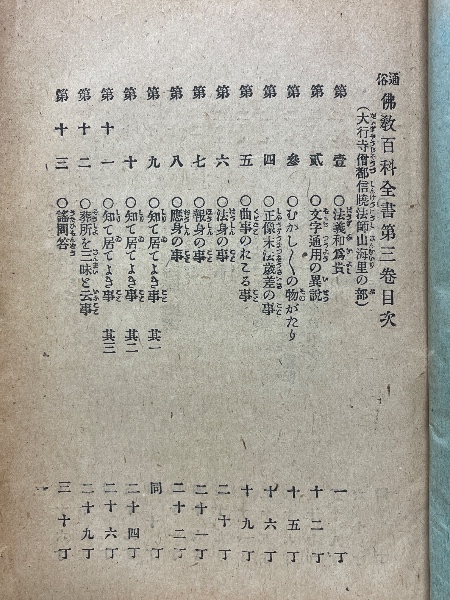 通俗佛教百科全書第三卷目次
(大行寺僧都信曉法師山海里の部)
第壹 〇法義和爲貴 一丁
第貳 〇文字通用の異説 十二丁
第參 〇むかし〱の物がたり 十五丁
第四 〇正像末法歳差の事 十六丁
第五 〇曲事のおこる事 十九丁
第六 〇法身の事 二十丁
第七 〇報身の事 二十一丁
第八 〇應身の事 二十二丁
第九 〇知て居てよき事 其一 同丁
第十 〇知て居てよき事 其二 二十四丁
第十一 〇知て居てよき事 其三 二十六丁
第十二 〇葬所を三昧と云事 二十九丁
第十三 〇謠問答 三十丁